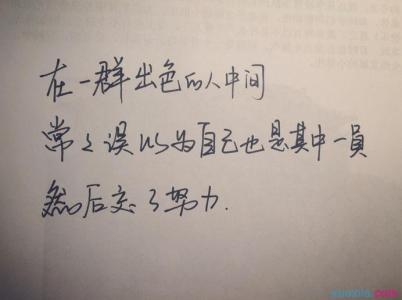 在一群出色的人中间
常々误以为自己也是其中一員
然后忘了努力.